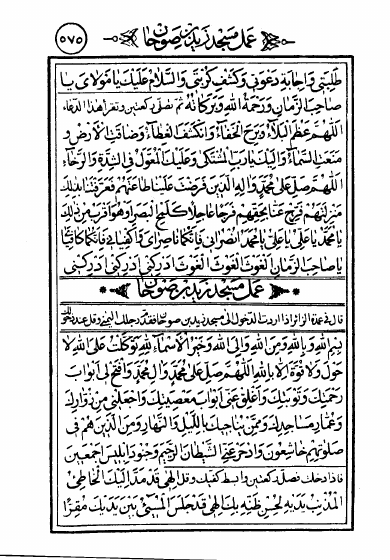 عمل مسجد زيد بن صوحان
٥٧٥
طلبتي و اجابة دعوتي و كشف كربتي والسلام عليك يا مولاي يا
صاحب الزمان ورحمة الله وبركاته ثم تصلى ركعتين وتقرء هذا الدعاء
اللهم عظم البلاء وبرح الخفاء وانكشف الغطاء وضاقت الارض و
منعت السماء واليك يا رب المشتكى وعليك المعول في الشدة والرخاء
اللهم صل على محمد واله الذين فرضت علينا طاعتهم فعرفتنا بذلك
منزلتهم فرج عنا بحقهم فرجا عاجلا كلمح البصر او هو اقرب من ذلك
يا محمد يا علي يا علي يا محمد انصراني فانكما ناصراي واكفياني فانكما كافياي
يا صاحب الزمان الغوث الغوث الغوث ادركني ادركني ادركني
عمل مسجد زيد بن صوحان
قال في عمدة الزائر اذا اردت الدخول الى مسجد زيد بن صوحان فقدم رجلك اليمنى وقل عند دخولك
بسم الله وبالله ومن الله والى الله وخير الاسماء لله توكلت على الله لا
حول ولا قوة الا بالله اللهم صل على محمد وال محمد وافتح لي ابواب
رحمتك وتوبتك واغلق عني ابواب معصيتك واجعلني من زوارك
وعمار مساجدك وممن يناجيك بالليل والنهار ومن الذين هم في
صلوتهم خاشعون وادحر عني الشيطان الرجيم وجنود ابليس اجمعين
فاذا دخلت فصل ركعتين وابسط كفيك وقل الهي قد مد اليك الخاطئ
المذنب يديه لحسن ظنه بك الهي قد جلس المسيئ بين يديك مقرا